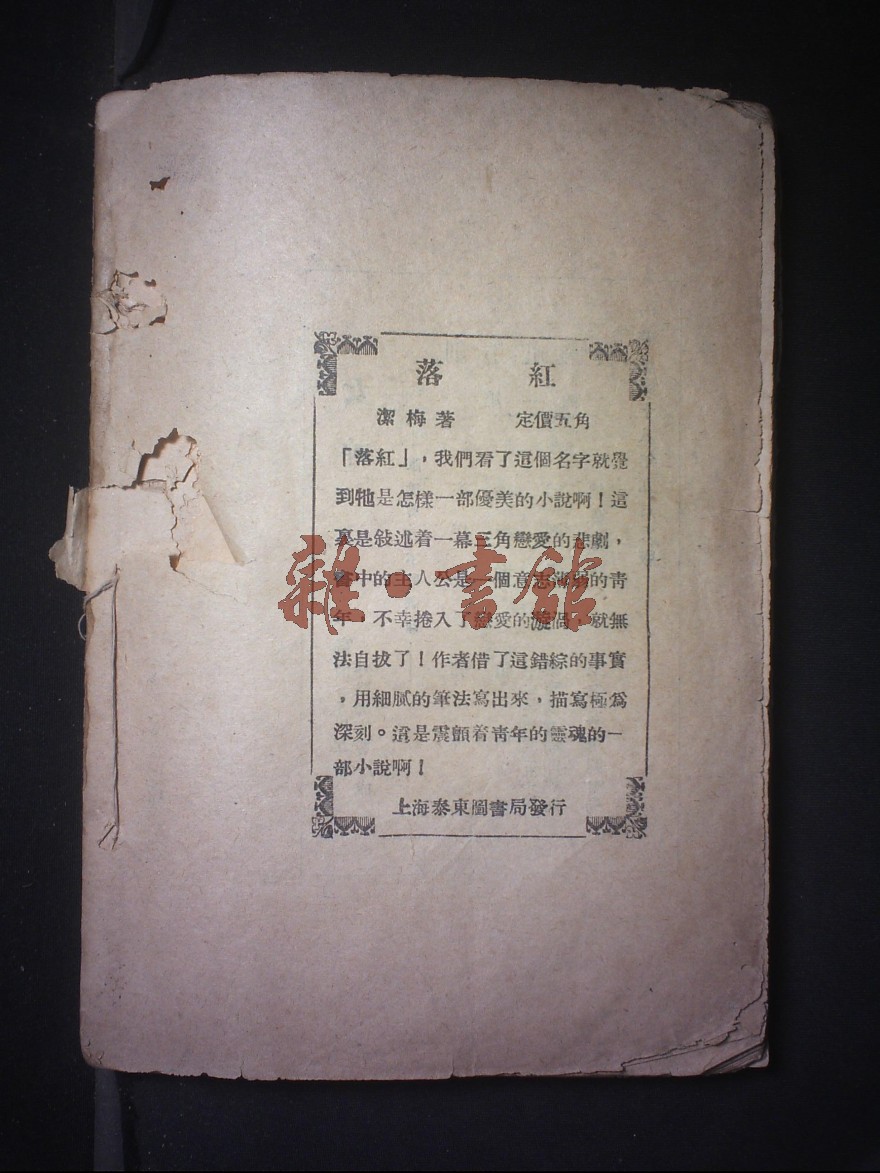 落紅
潔梅著 定價五角
「落紅」，我們看了這個名字就覺
到牠是怎樣一部優美的小說啊！這
裏是敍述着一幕三角戀愛的悲劇，
書中的主人公是一個意志薄弱的靑
年，不幸捲入了戀愛的漩渦，就無
法自拔了！作者借了這錯綜的事實
，用細膩的筆法寫出來，描寫極爲
深刻。這是震顫着靑年的靈魂的一
部小說啊！
上海泰東圖書局發行
雜·書館